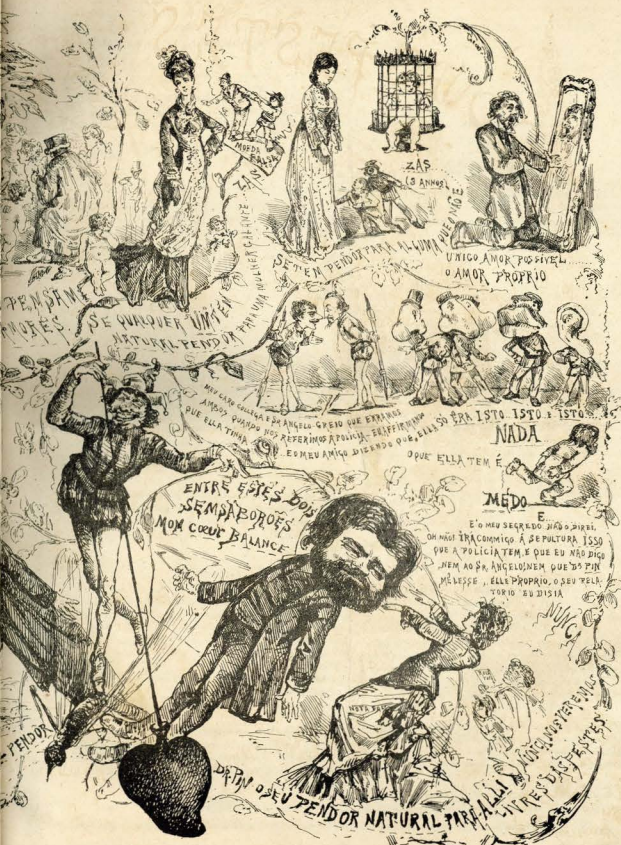 MOEDA FALSA
ZÁS!
ZÁS
(3 ANNOS)
UNICO AMOR POSSIVEL
O AMOR PROPRIO
PENSAM E
SE QUALQUER UM TEM
NATURAL PENDOR PARA UMA MULHER GALANTE
SE TEM PENDOR PARA ALGUMA QUE NÃO É
MEU CARO COLLEGA E SR. ANGELO CREIO QUE ERRAMOS
AMBOS QUANDO NOS REFERIMOS A POLICIA
QUE ELLA TINHA
E O MEU AMIGO DIZENDO QUE, ELLA SÓ ERA ISTO ISTO E ISTO..
NADA
O QUE ELLA TEM É
MÊDO
E...
E'O MEU SEGREDO NÃO O DIREI,
OH NÃO! IRÁ COMMIGO Á SEPULTURA ISSO
QUE A POLICIA TEM, E QUE EU NÃO DIGO
NEM AO SR. ANGELO! NEM QUE DR PIN
ME LESSE, ELLE PROPRIO, O SEU RELA
TORIO EU DISIA
NUNCA
ENTRE ESTES DOIS
SEMSABORÕES
MON CŒUR BALANCE
PENDOR
DR. PIN O SEU PENDOR NATURAL PARA ALLI
LIVRES DAS PESTES